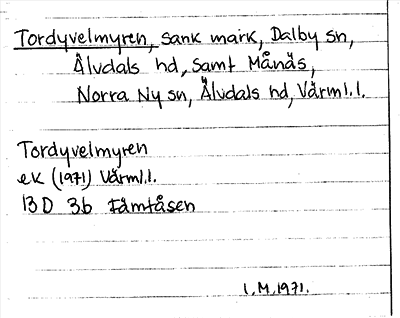 Tordyvelmyren, sank mark, Dalby sn,
Älvdals hd, samt Månäs,
Norra Ny sn, Älvdals hd, Värml.l.
Tordyvelmyren
ek (1971) Värml.l.
13D 3b Fämtåsen
I.M.1971.